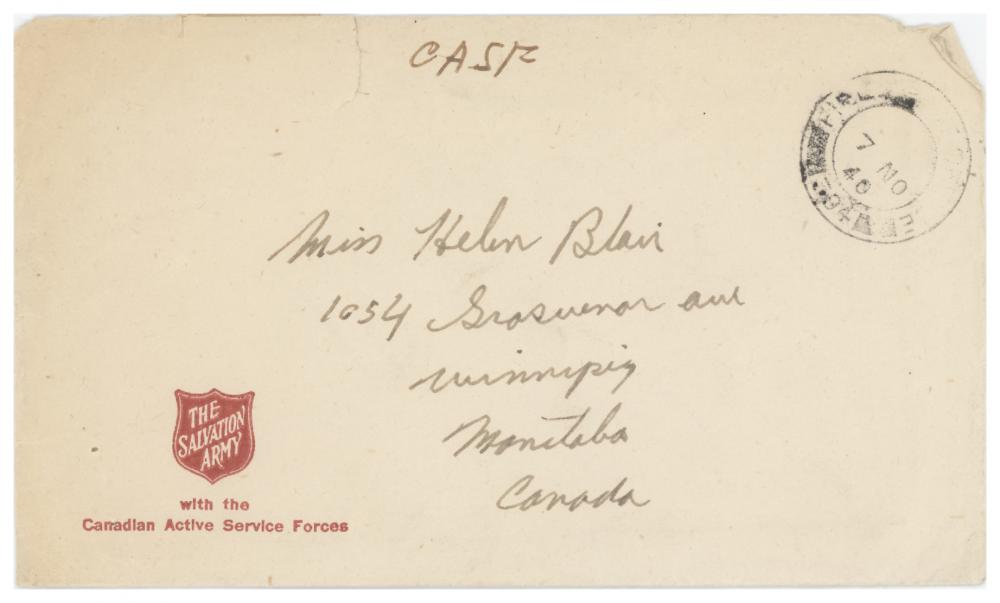 CASF
7 NO
40
Miss Helen Blair
1054 Grosvenor ave
Winnipeg
Manitoba
Canada
THE
SALVATION
ARMY
with the
Canadian Active Service Forces